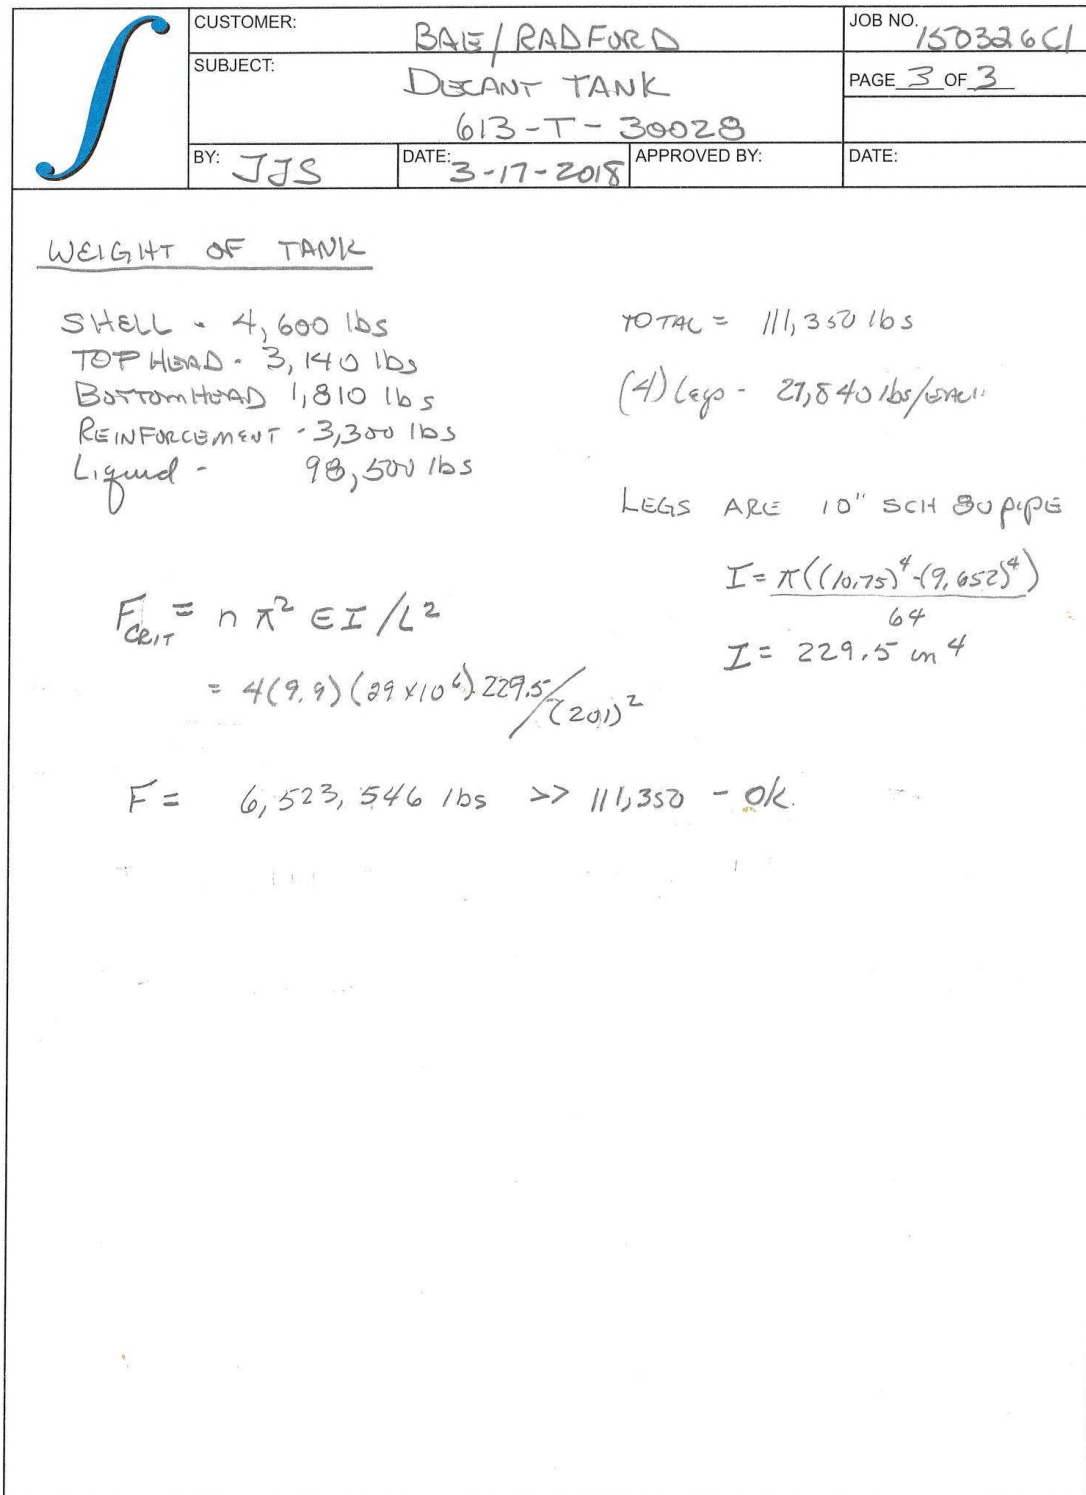 CUSTOMER: BAE/RADFORD
JOB NO. 150326C1
SUBJECT: DECANT TANK
613-T-30028
PAGE 3 OF 3
BY: JJS
DATE: 3-17-2018
APPROVED BY:
DATE:
WEIGHT OF TANK
SHELL - 4,600 lbs
TOP HEAD - 3,140 lbs
BOTTOM HEAD 1,810 lbs
REINFORCEMENT - 3,300 lbs
Liquid - 98,500 lbs
TOTAL = 111,350 lbs
(4) Legs - 27,840 lbs/EACH
LEGS ARE 10" SCH 80 PIPE
I = π((10.75)^4-(9.652)^4)
64
I = 229.5 in 4
F CRIT = n π² E I / L²
= 4(9.9)(29 x 10^6) 229.5/(201)²
F = 6,523,546 lbs >> 111,350 - ok.